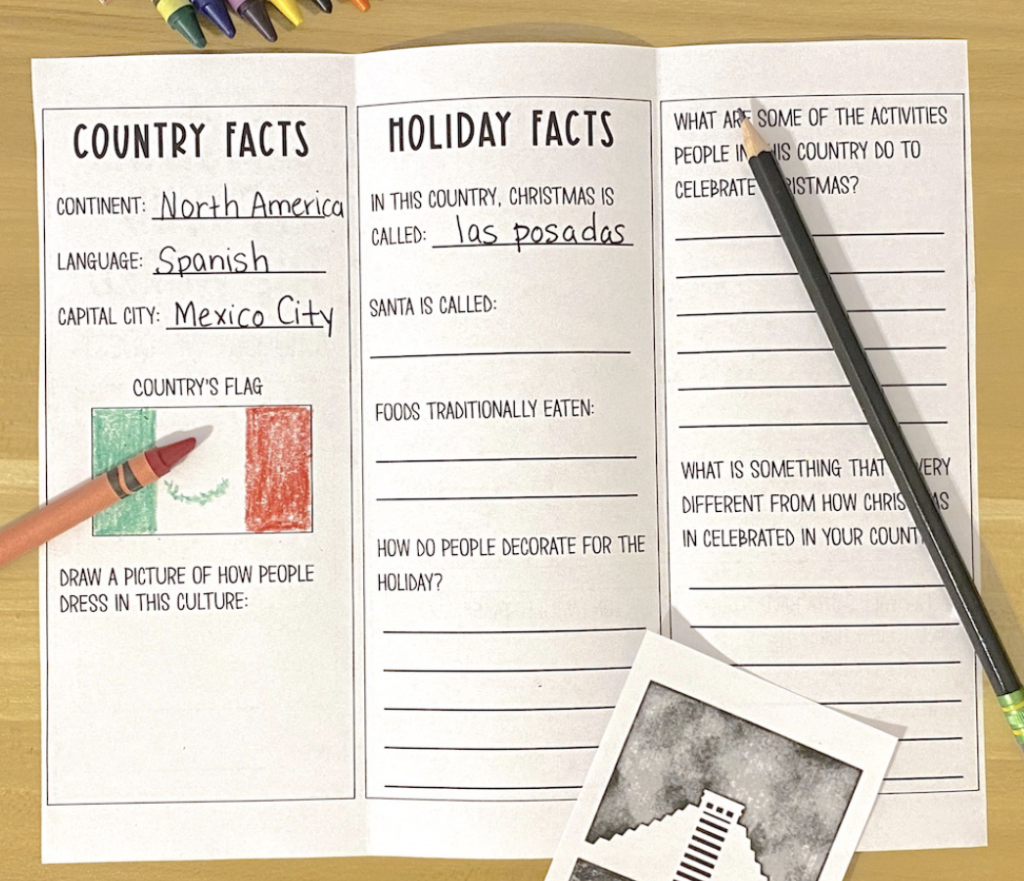 COUNTRY FACTS
CONTINENT: North America
LANGUAGE: Spanish
CAPITAL CITY: Mexico City
COUNTRY'S FLAG
DRAW A PICTURE OF HOW PEOPLE
DRESS IN THIS CULTURE:
HOLIDAY FACTS
IN THIS COUNTRY, CHRISTMAS IS
CALLED: las posadas
SANTA IS CALLED:
FOODS TRADITIONALLY EATEN:
HOW DO PEOPLE DECORATE FOR THE
HOLIDAY?
WHAT ARE SOME OF THE ACTIVITIES
PEOPLE IN THIS COUNTRY DO TO
CELEBRATE CHRISTMAS?
WHAT IS SOMETHING THAT VERY
DIFFERENT FROM HOW CHRISTMAS
IN CELEBRATED IN YOUR